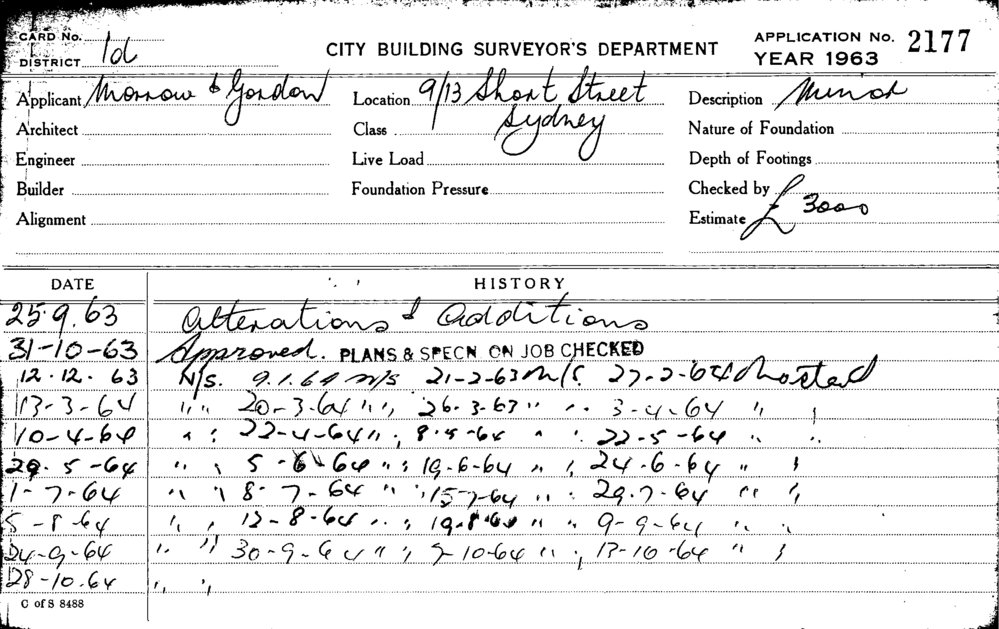 CARD No.
DISTRICT 1d
CITY BUILDING SURVEYOR'S DEPARTMENT
APPLICATION No. 2177
YEAR 1963
Applicant Morrow & Gordon
Location 9/13 Short Street
Sydney
Description Minor
Architect
Class
Nature of Foundation
Engineer
Live Load
Depth of Footings
Builder
Foundation Pressure
Checked by
Alignment
Estimate £ 3000
DATE HISTORY
25.9.63 Alterations & Additions
31-10-63 Approved. PLANS & SPECN ON JOB CHECKED
12.12.63 N/s. 9.1.64 N/s 21-2-63 N/s. 27-2-64 Started
13-3-64 " " 20-3-64 " " 26.3-63 " " 3-4-64 "
10-4-64 " 22-4-64 " 8.5-64 " 22-5-64 "
29.5-64 " 5-6-64 " 19-6-64 " 24-6-64 "
1-7-64 " 8-7-64 " 15-7-64 " 29.7-64 "
5-8-64 " 12-8-64 " 19.8.64 " 9-9-64 "
24-9-64 " 30-9-64 " 7-10-64 " 13-10-64 "
28-10.64 "
C of S 8488